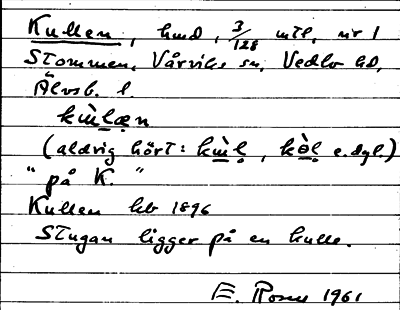 Kullen, hmd, 3/128 mtl, nr 1
Stommen, Vårviks sn, Vedbo hd,
Älvsb. l.
kùlæn
(aldrig hört: kùl, kòl e.dyl.)
"på K."
Kullen kb 1896
Stugan ligger på en kulle.
E. Rosne 1961